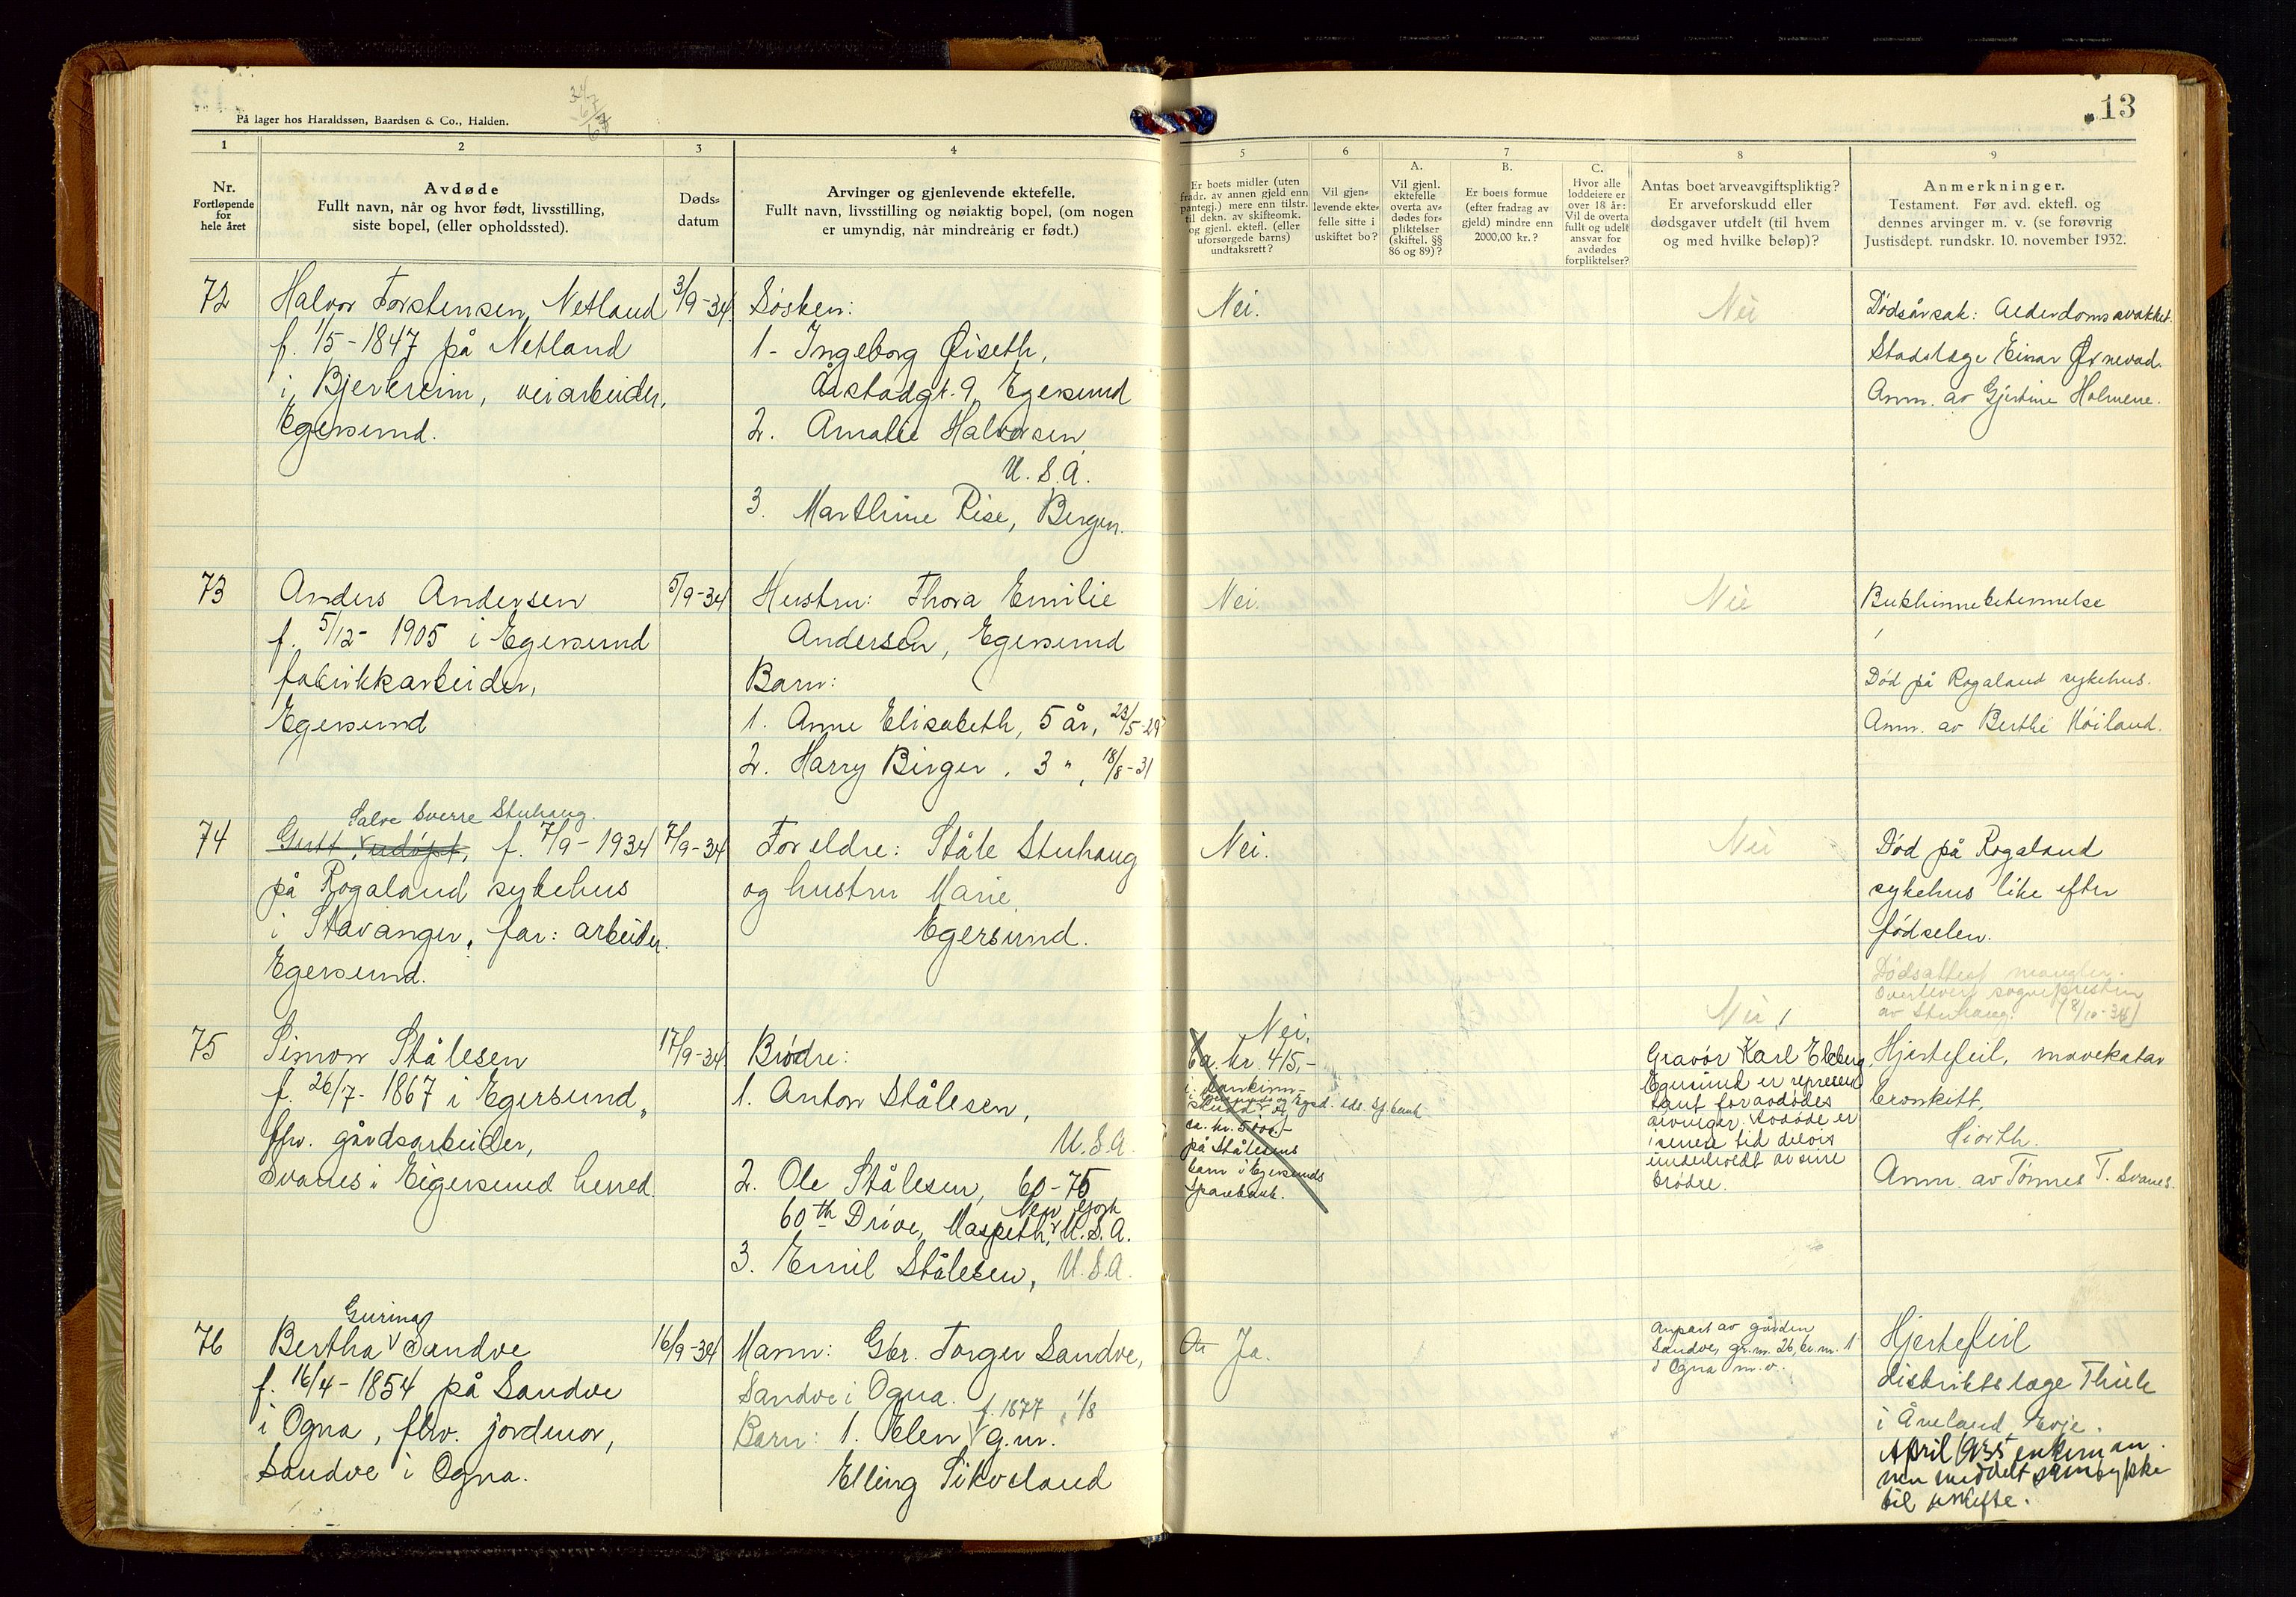 På lager hos Haraldssøn, Baardsen & Co., Halden.
13
1
2
3
4
5
6
7
8
9
Nr.
Fortløpende
for
hele året
Avdøde
Fullt navn, når og hvor født, livsstilling,
siste bopel, (eller opholdssted).
Døds-
datum
Arvinger og gjenlevende ektefelle.
Fullt navn, livsstilling og nøiaktig bopel, (om nogen
er umyndig, når mindreårig er født.)
Er boets midler (uten
fradr. av annen gjeld enn
pantegj.) mere enn tilstr.
til dekn. av skifteomk.
og gjenl. ektefl. (eller
uforsørgede barns)
undtaksrett?
Vil gjen-
levende ekte-
felle sitte i
uskiftet bo?
A.
Vil gjenl.
ektefelle
overta av-
dødes for-
pliktelser
(skiftel. §§
86 og 89)?
B.
Er boets formue
(efter fradrag av
gjeld) mindre enn
2000,00 kr.?
C.
Hvor alle
loddeiere er
over 18 år:
Vil de overta
fullt og udelt
ansvar for
avdødes
forpliktelser?
Antas boet arveavgiftspliktig?
Er arveforskudd eller
dødsgaver utdelt (til hvem
og med hvilke beløp)?
Anmerkninger.
Testament. Før avd. ektefl. og
dennes arvinger m. v. (se forøvrig
Justisdept. rundskr. 10. november 1932.
72
Halvor Torstensen Netland
f. 1/5-1847 på Netland
i Bjerkreim, veiarbeider,
Egersund.
3/9-34
Søsken:
1- Ingeborg Øiseth,
Årstadgt. 9, Egersund
2. Amalie Halvorsen,
U.S.A.
3. Marthine Rise, Bergen.
Nei.
Nei
Dødsårsak: Alderdomssvakhet.
Stadslæge Einar Ørnevad.
Anm. av Gjertine Holmene.
73
Anders Andersen
f. 5/12-1905 i Egersund
fabrikkarbeider,
Egersund
5/9-34
Hustru: Thora Emilie
Andersen, Egersund
Barn:
1. Anne Elisabeth, 5 år, 23/5-29
2. Harry Birger. 3 ", 18/8-31
Nei.
Nei
Bukhinnebetennelse
Død på Rogaland sykehus.
Anm. av Berthe Høiland.
74
Salve Sverre Stuhaug.
Gutt, udøpt, f. 7/9-1934
på Rogaland sykehus
i Stavanger, far: arbeider.
Egersund.
7/9-34
Foreldre: Ståle Stuhaug
og hustru Marie,
Egersund.
Nei.
Nei
Død på Rogaland
sykehus like efter
fødselen.
Dødsattest mangler.
Overlevert sognepresten
av Stuhaug. (8/10-34)
75
Simon Stålesen
f. 26/7-1867 i Egersund,
fhv. gårdsarbeider,
Svanes i Eigersund herred.
17/9-34
Brødre:
1. Anton Stålesen,
U.S.A.
2. Ole Stålesen, 60-75
60th Drive, Maspeth, New York U.S.A.
3. Emil Stålesen, U.S.A.
Nei.
Ca. kr. 415,-
i bankinn-
ca. kr. 5000.-
på Stålesens
barn i Egersunds
Sparebank.
Nei!
Gravør Karl Eleberg,
Egersund er represen
tant for avdødes
arvinger. Avdøde er
i senere tid delvis
underholdt av sine
brødre.
Hjertefeil, mavekatar
bronkitt,
Hiorth.
Anm. av Tønnes T. Svanes.
76
Gurina
Bertha Sandve
f. 16/4-1854 på Sandve
i Ogna, fhv. jordmor,
Sandve i Ogna.
16/9-34
Mann: Gbr. Torger Sandve,
Sandve i Ogna.
f. 1877, 1/8
Barn: 1. Elen g.m.
Elling Sikvaland
Ja.
Anpart av gården
Sandve, gr.nr. 26, br.nr. 1
i Ogna m.v.
Hjertefeil
distriktslæge Thiele
i Åneland, Evje.
April 1935 enkeman
nen meddelt samtykke
til uskifte.